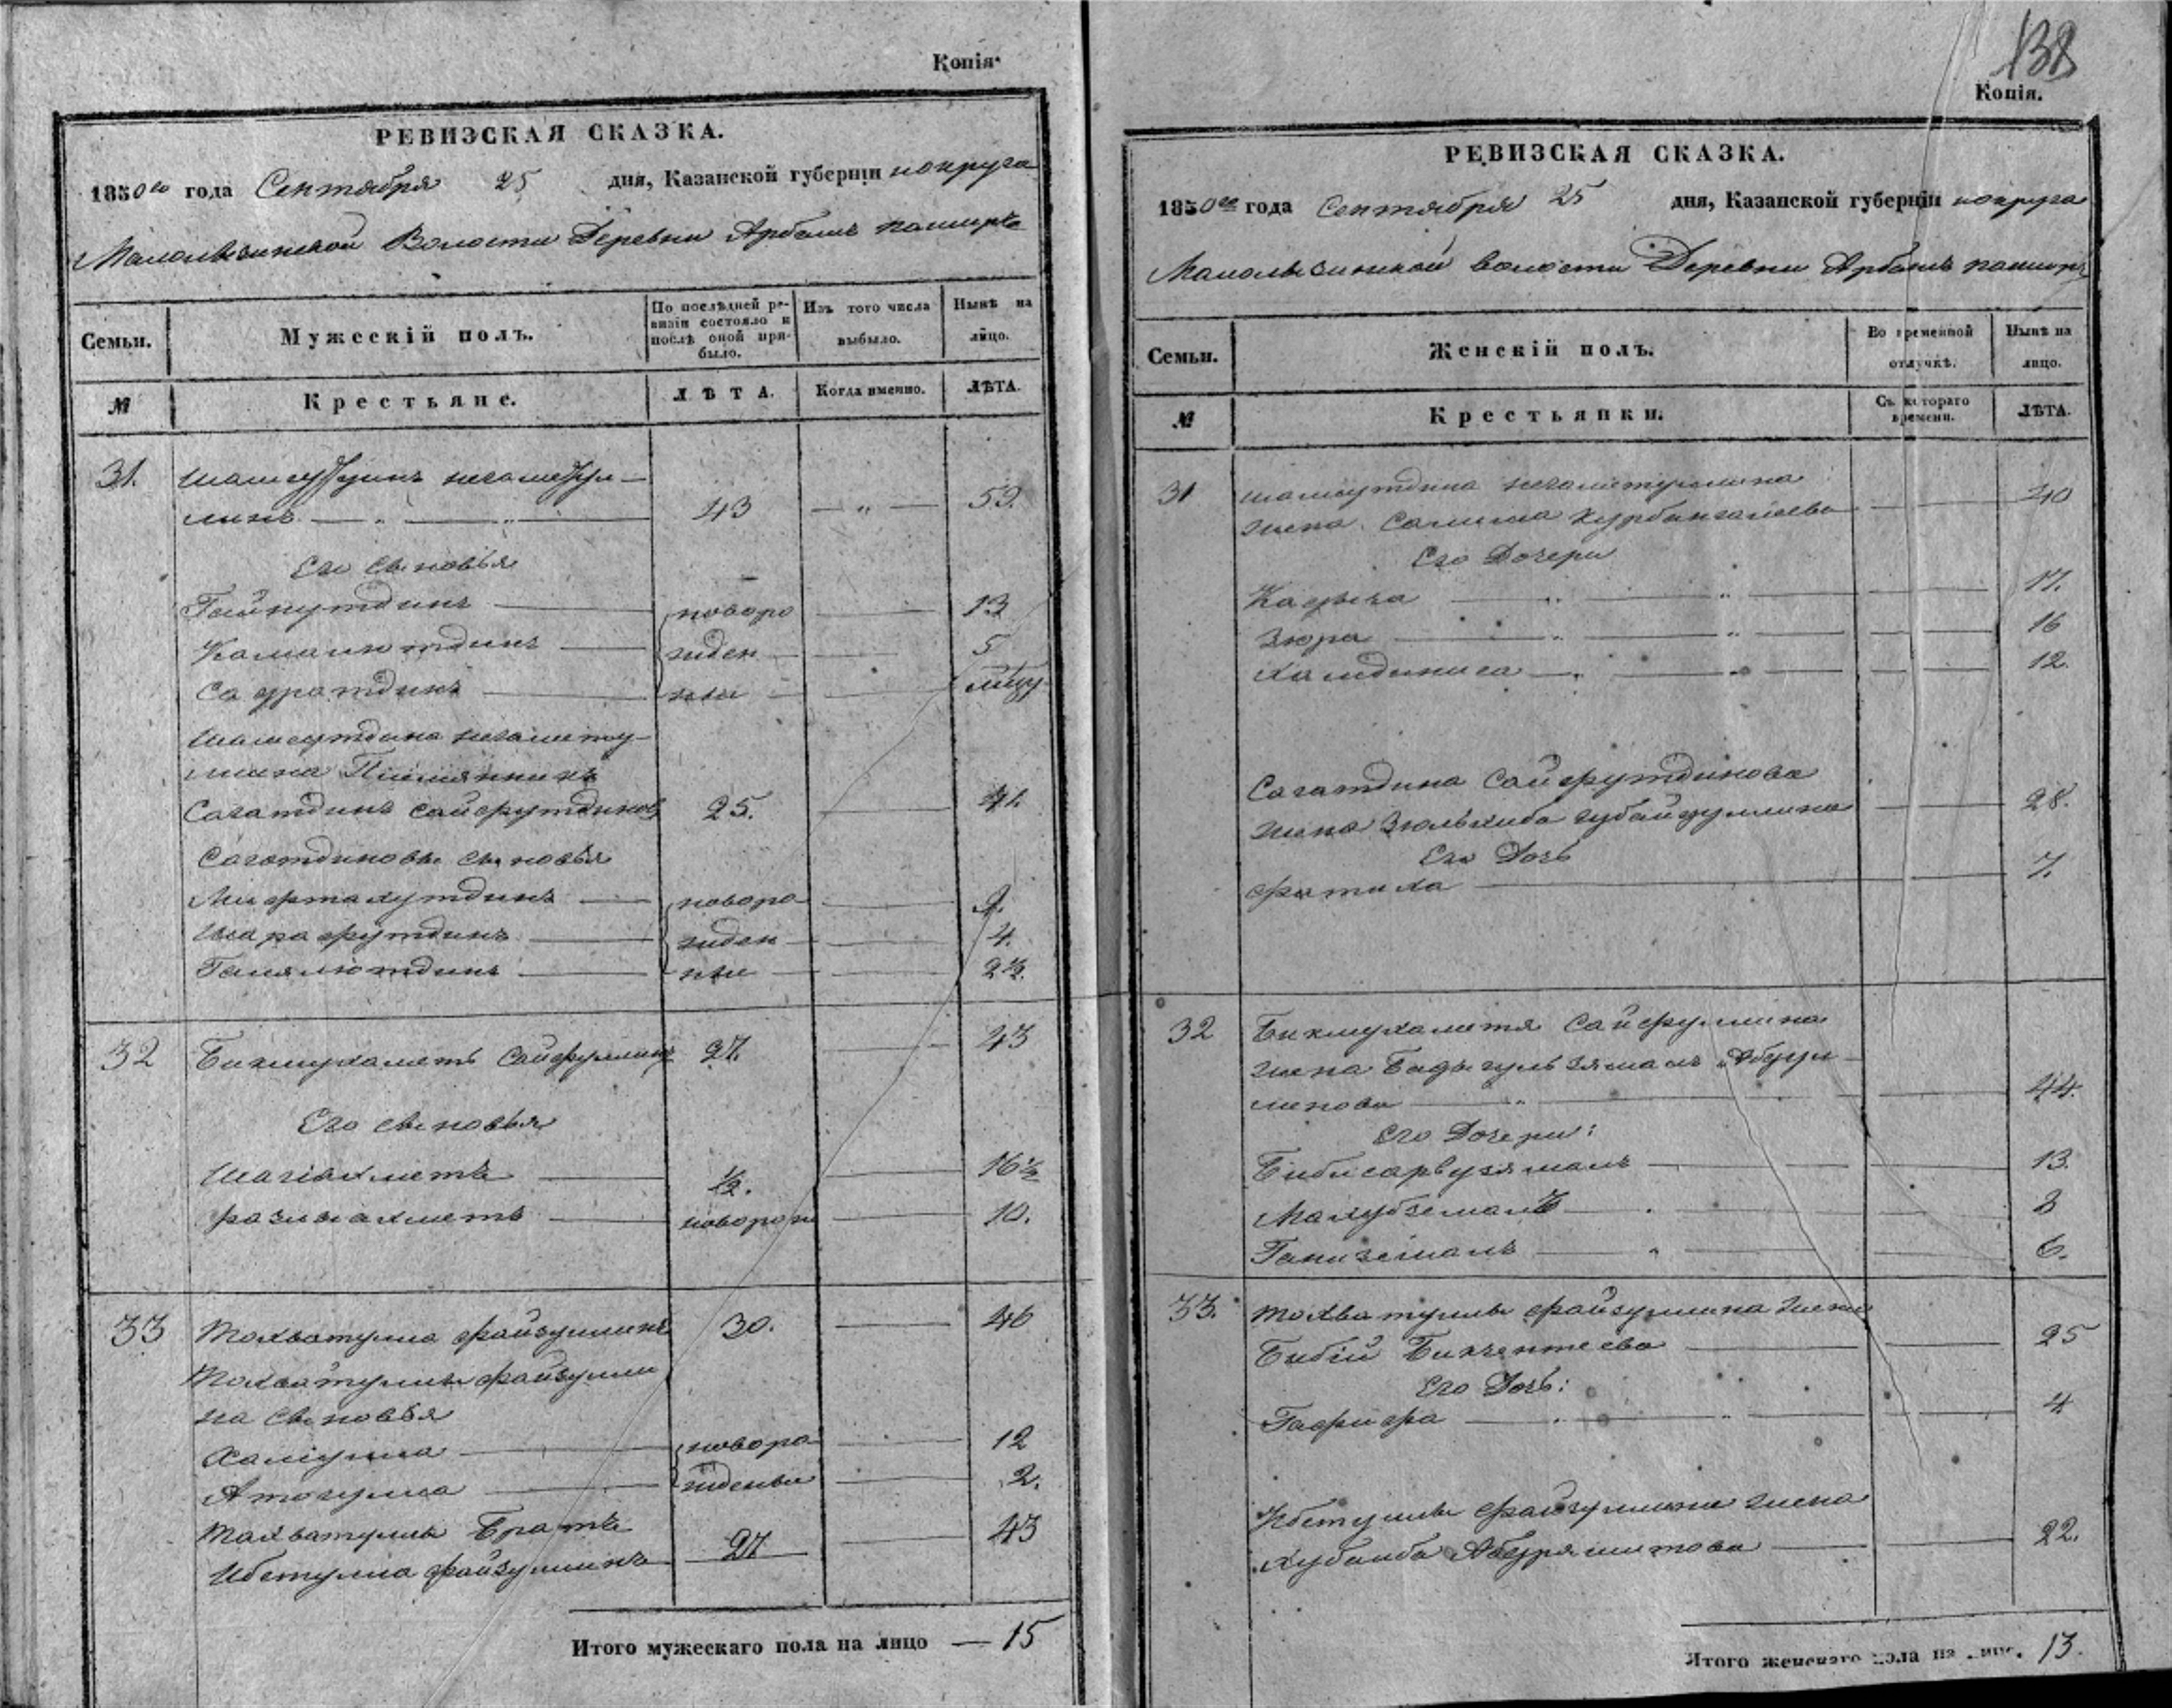 Копія.
РЕВИЗСКАЯ СКАЗКА.
1850го года Сентября 25 дня, Казанской губерніи и округа
Волости Деревни Арбашъ
Семьи. Мужескій полъ. По послѣдней ревизіи состояло и послѣ оной прибыло. Изъ того числа выбыло. Нынѣ на лицо.
№ Крестьяне. ЛѢТА. Когда именно. ЛѢТА.
31. Негаметул-
линъ — „ — „ — 43 — „ — 59.
Его сыновья
Гайнутдинъ — новоро — 13
Камалютдинъ — жден — 5
Садратдинъ — ные —
Шамсутдина Негамету-
ллина Племянникъ
Сагатдинъ Сайфутдиновъ 25. — 41
Сагатдиновы сыновья
Мифтахутдинъ — новоро — 9.
Шарафутдинъ — жден — 4.
Гималютдинъ — ные — 2½.
32 Бикмухаметъ Сайфуллинъ 27. — 43
Его сыновья
Шагіахметъ — ½. — 16½
Фазлыахметъ — новорож — 10.
33 Тохватулла Файзуллинъ 30. — 46
Тохватуллы Файзулли
на сыновья
Халіулла — новоро — 12
Атаулла — жденые — 2.
Тохватуллы Братъ
Ибетулла Файзуллинъ 27 — 43
Итого мужескаго пола на лицо — 15
138
Копія.
РЕВИЗСКАЯ СКАЗКА.
1850го года Сентября 25 дня, Казанской губерніи и округа
волости Деревни Арбашъ
Семьи. Женскій полъ. Во временной отлучкѣ. Нынѣ на лицо.
№ Крестьянки. Съ котораго времени. ЛѢТА.
31 Шамсутдина Негаметуллина
жена Салима Курбангалеева — 40
Его Дочери
— „ — „ — 17.
Зюра — „ — „ — 16
— „ — „ — 12.
Сагатдина Сайфутдинова
жена Зюльхиба Губайдуллина — 28.
Его Дочь
Фатиха — 7.
32 Бикмухаметя Сайфуллина
жена Бадыгульзямалъ Абдул-
менова — „ — 44.
Его Дочери:
Бибисарвузямалъ — 13.
Махубземалъ — . — 8
Ганиземалъ — „ — 6.
33. Тохватуллы Файзуллина жена
Бибій Бикчентеева — 25
Его Дочь:
Гафифа — „ — 4
Ибетуллы Файзуллина жена
Хубаиба Абдряшитова — 22.
Итого женскаго пола на лицо. 13.